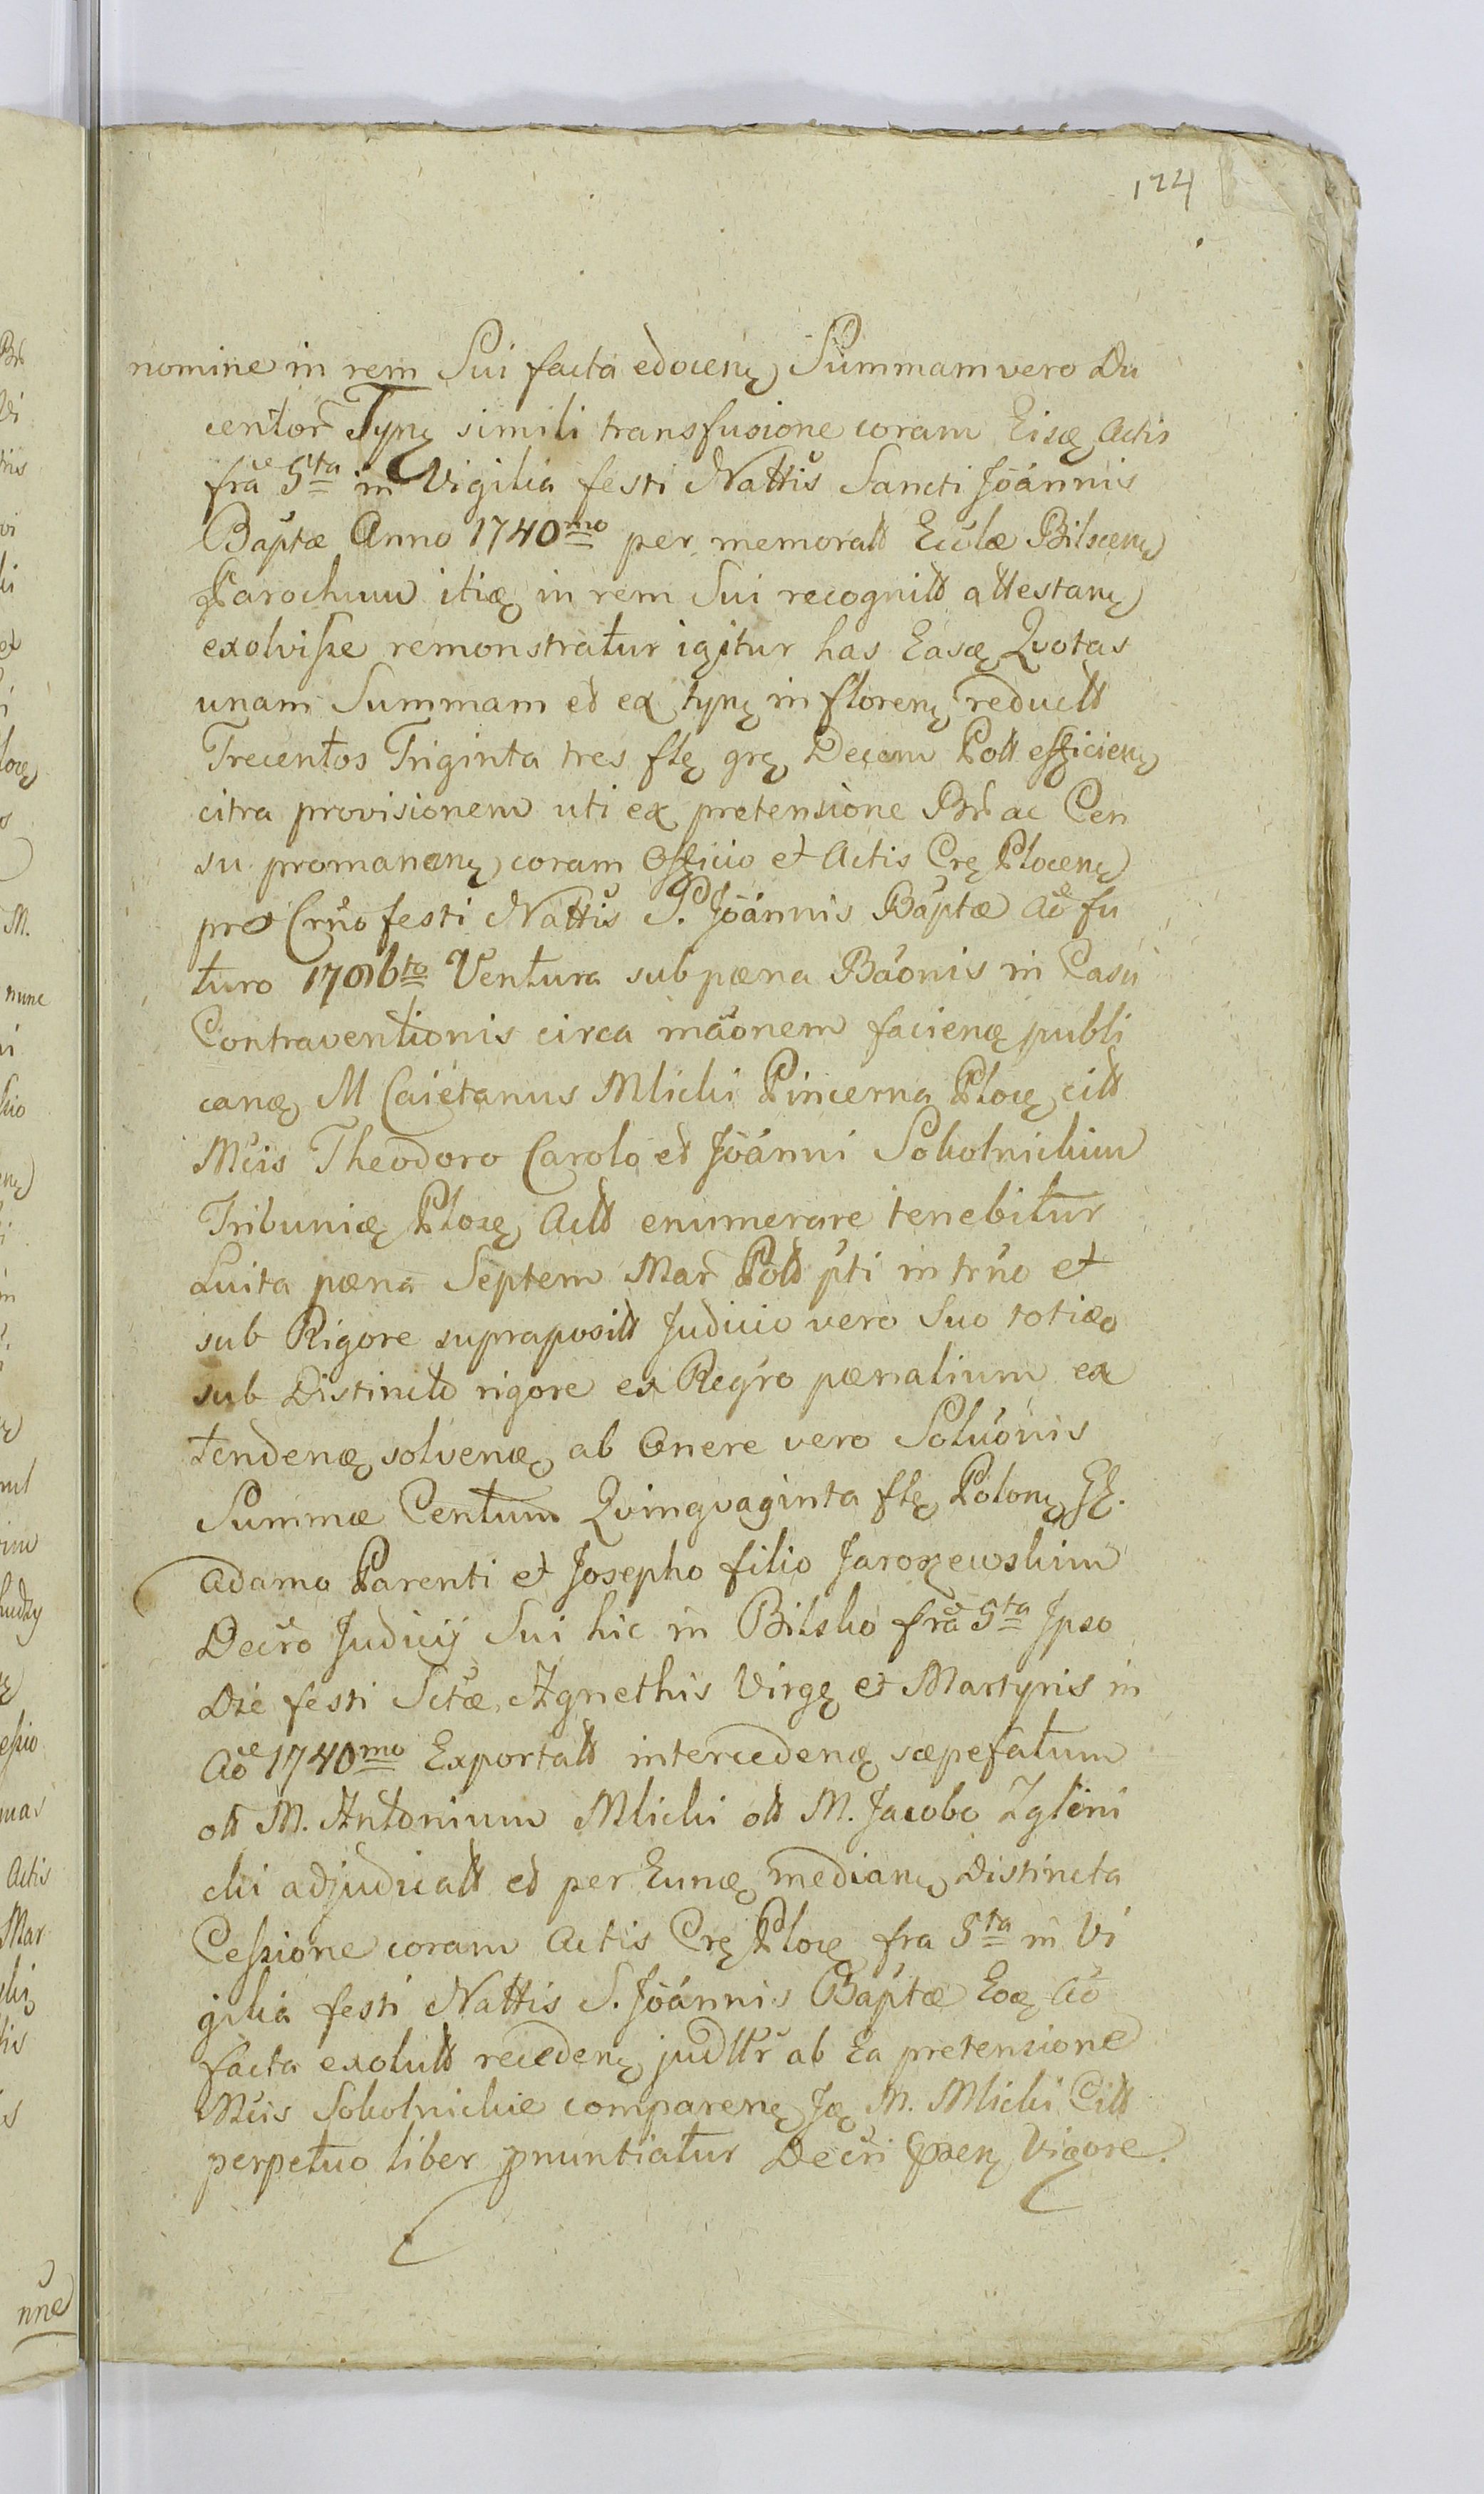 124
nomine in rem Sui facta edocenę Summam vero Du
centor Tynę simili transfusione coram Eisę Actis
fra 5ta in Vigilia festi Nattis Sancti Joannis
Baptæ Anno 1740mo per memoratt Ecclæ Bilscenę
Parochum itię in rem Sui recognitt attestanę
exolvisse remonstratur igitur has Easę Qvotas
unam Summam et ex tynę in florenę reductt
Trecentos Triginta tres flę grę Decem Poll efficienę
citra provisionem uti ex pretensione Brł ac Cen
su promanenę coram Officio et Actis Crę Plocenę
pro Crno festi Nattis S. Joannis Baptæ Ao fu
turo Ventura sub pæna Baonis in Casu
Contraventionis circa maonem facienę publi
canę M Caietanus Mlicki Pincerna Plocę citt
Mcis Theodoro Carolo et Joanni Sokolnickim
Tribunię Plocę Actt enumerare tenebitur
Luita pæna Septem Mar Poll pti in trno et
sub Rigore suprapositt Judicio vero Suo toties
sub Distincto rigore ex Regro pænalium ex
tendenę solvenę ab Onere vero Soluonis
Summæ Centum Qvinqvaginta flę Polonę Gę.
Adamo Parenti et Josepho filio Jaroszewskim
Decro Judicij Sui hic in Bilsko fra 5ta Ipso
Die festi Sctæ Agnethis Virgę et Martyris in
Ao 1740mo Exportatt intercedenę sæpefatum
olt M. Antonium Mlicki olt M. Jacobo Zgleni
cki adjudicatt et per Eunę medianę Distincta
Cessione coram Actis Crę Plocę fra 5ta in Vi
gilia festi Nattis S. Joannis Baptæ Eoę Ao
facta exolutt recedenę judttr ab Ea pretensione
Mcis Sokolnickie comparenę Ję M. Mlicki Citt
perpetuo liber pnuntiatur Decri Vigore.